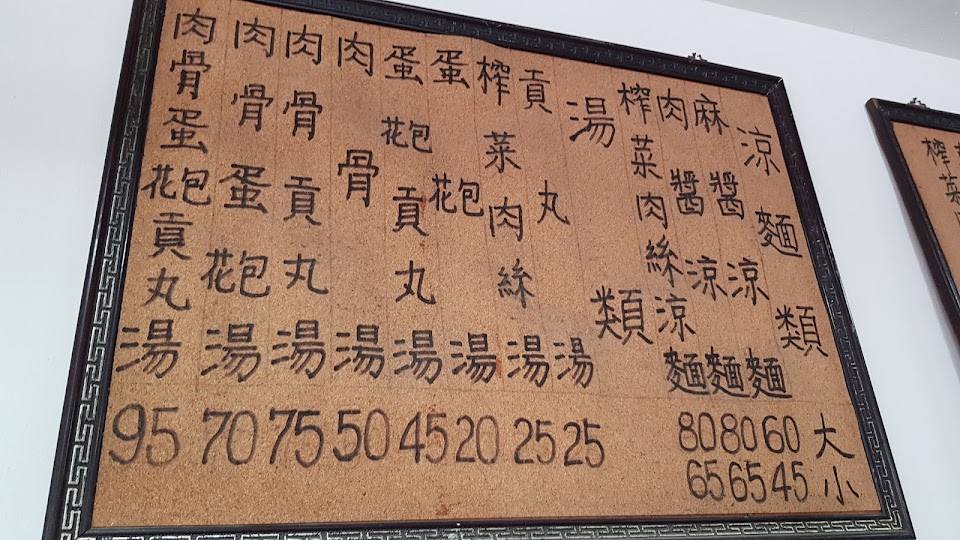 涼麵類 大 小
麻醬涼麵 60 45
肉醬涼麵 80 65
榨菜肉絲涼麵 80 65
湯類
貢丸湯 25
榨菜肉絲湯 25
蛋花包湯 20
蛋花包貢丸湯 45
肉骨湯 50
肉骨貢丸湯 75
肉骨蛋花包湯 70
肉骨蛋花包貢丸湯 95
榨菜